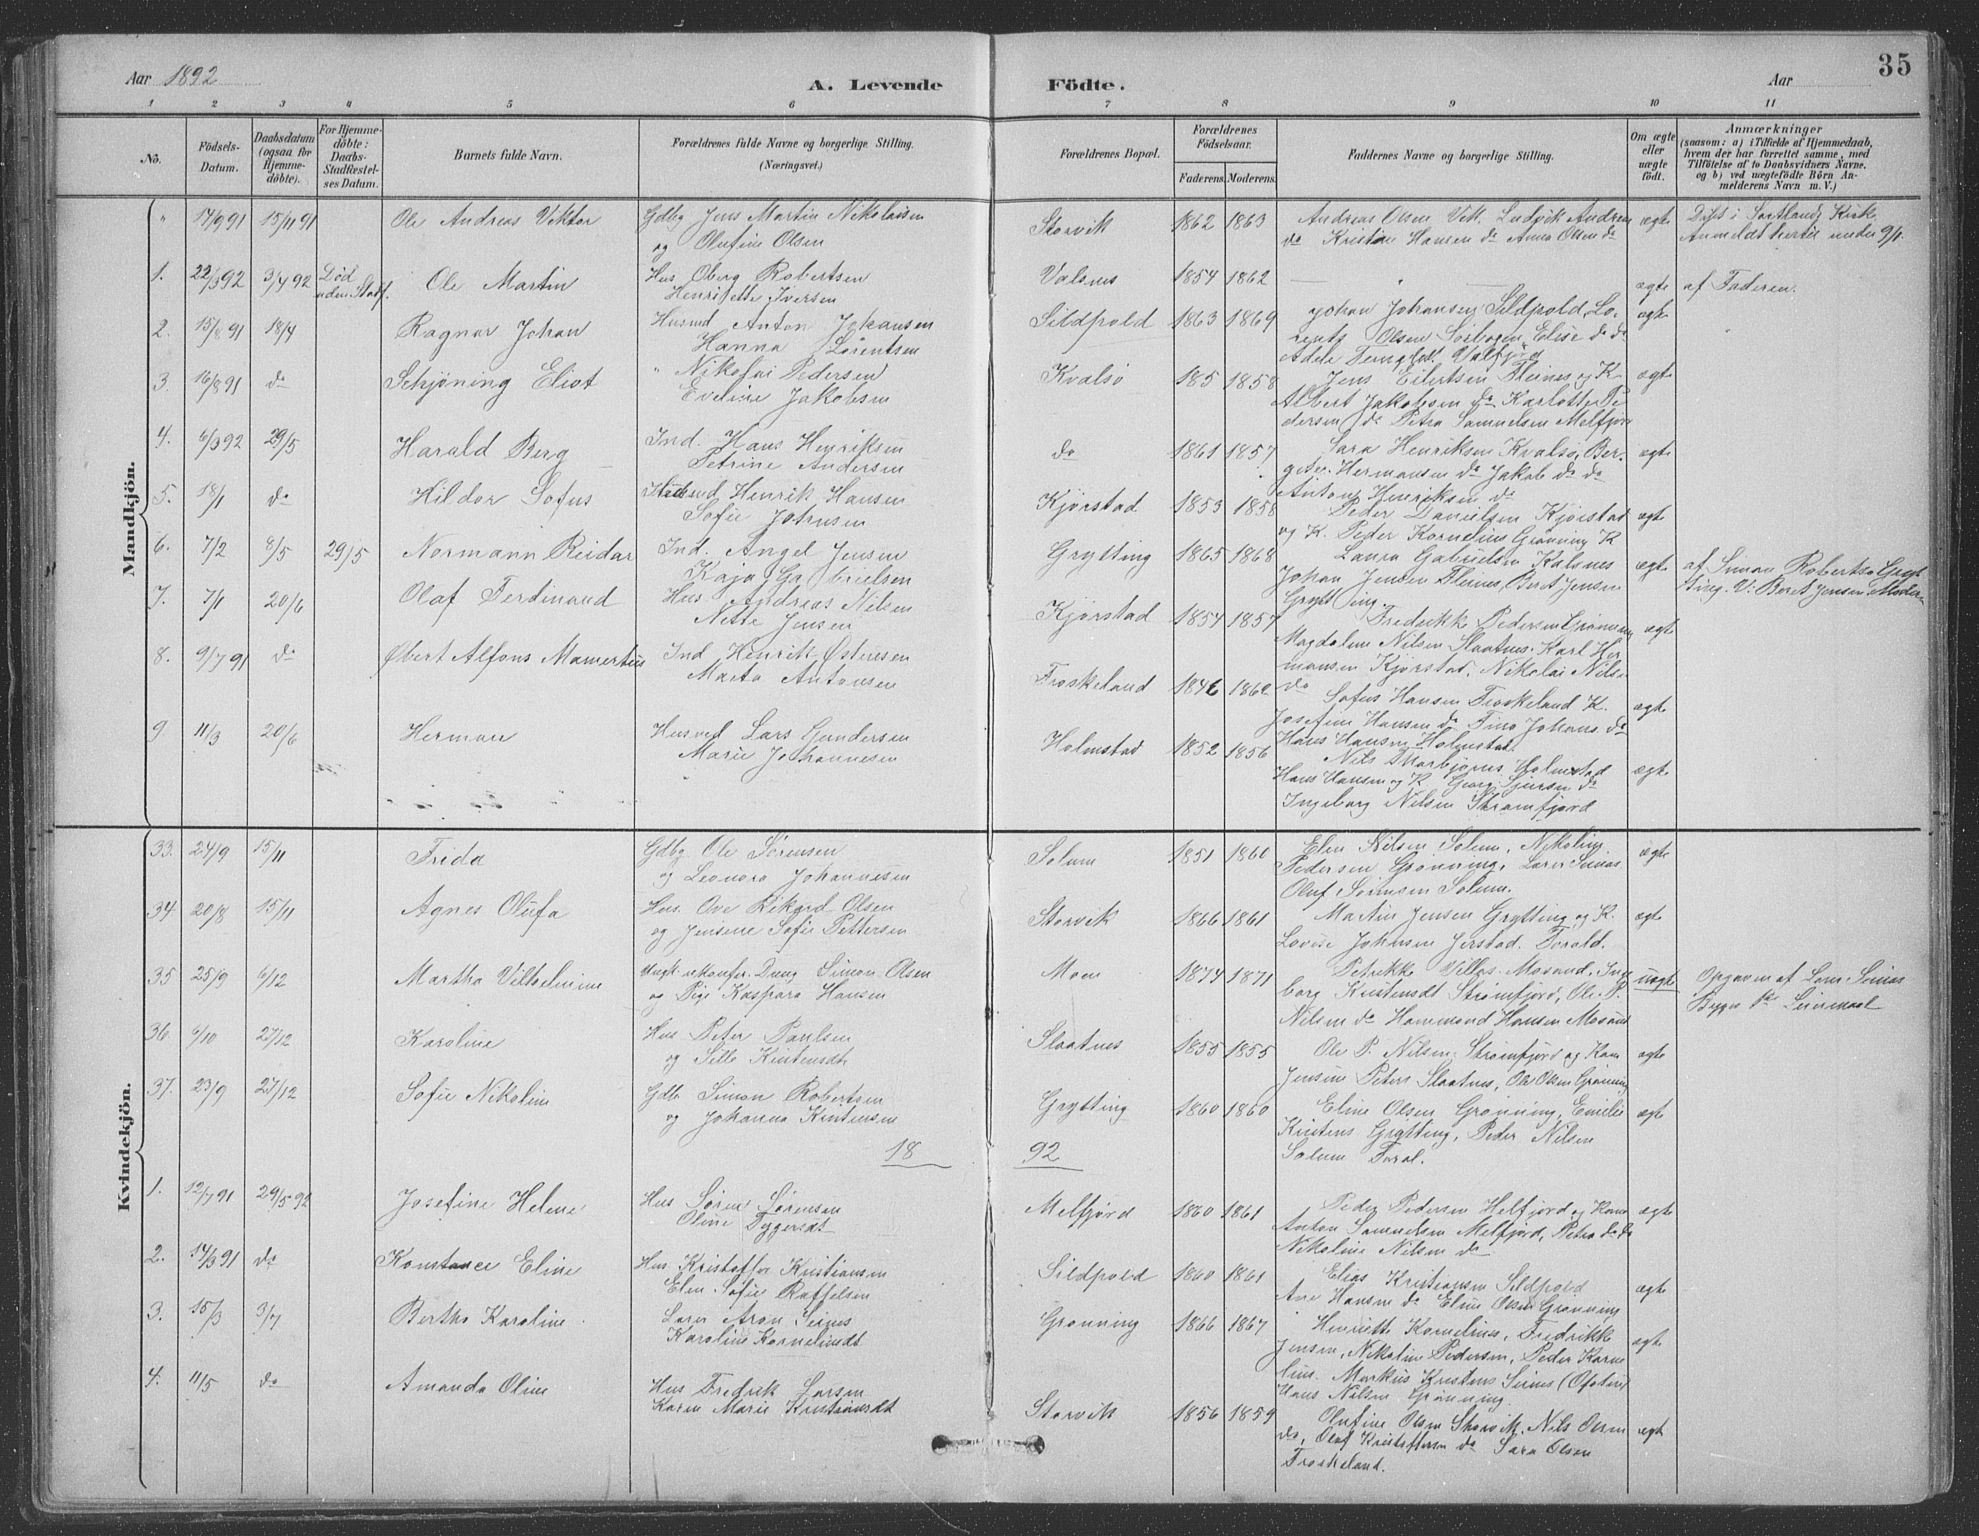 35
Aar 1892
A. Levende Födte.
Aar
1 2 3 4 5 6 7 8 9 10 11
No.
Födsels-Datum.
Daabsdatum (ogsaa for Hjemme-döbte).
For Hjemme-döbte: Daabs-Stadfæstel-ses Datum.
Barnets fulde Navn.
Forældrenes fulde Navne og borgerlige Stilling.
(Næringsvei.)
Forældrenes Bopæl.
Forældrenes Födselsaar.
Faderens. Moderens.
Faddernes Navne og borgerlige Stilling.
Om ægte eller uægte födt.
Anmærkninger
(saasom: a) i Tilfælde af Hjemmedaab, hvem der har forrettet samme, med Tilföielse af to Daabsvidners Navne. og b) ved uægtefödte Börn An-melderens Navn m. V.)
Mandkjön.
" 17/9 91 15/11 91 Ole Andreas Viktor Gdbg Jens Martin Nikolaisen Storvik 1862 1863 Andreas Olsen Vik. Ludvik Andrea ægte i Sortland Kirke
og Olufine Olsen do Kristine Hansen do Anna Olsen do Anmeldt hertil under 9/1.
1. 22/3 92 3/4 92 Död uden Stadf. Ole Martin Hus Oberg Robertsen Valsnes 1854 1862 — " — ægte af Faderen.
Henriette Iversen
2. 15/8 91 18/4 Ragnar Johan Husmd Anton Johansen Sildpold 1863 1869 Johan Johansen Sildpold, Lo- ægte "
Hanna Lorentsen rents Olsen Elise do do
Adele
3. 16/8 91 do Schjöning Eliot " Nikolai Pedersen Kvalsö 185 1858 Jens Eilertsen Fleines og K. ægte
Eveline Jakobsen Albert Jakobsen do Karlotte Pe
dersen do Petra Samuelsen Melfjord
4. 6/3 92 29/5 Harald Berg Ind. Hans Henriksen do 1861 1857 Sara Henriksen Kvalsö, Ber- ægte
Petrine Andersen Hermansen do Jakob do do
Anton Henriksen do
5. 18/1 do Hildor Sofus Henrik Hansen Kjörstad 1853 1858 Peder Danielsen Kjörstad ægte
Sofie Johnsen og K. Peder Kornelius Grönning K
6. 7/2 8/5 29/5 Normann Reidar Ind. Angel Jensen Grytting 1865 1868 Laura Gabrielsen Kalsnes ægte af Simon Roberts.
Kaja Gabrielsen Johan Jensen Fleines, Beret Jensen V: Beret Jensen
Grytting.
7. 7/1 20/6 Olaf Ferdinand Hus Andreas Nilsen Kjörstad 1854 1857 Fredrikke Pedersen Grönning ægte
Nette Jensen Magdalene Nilsen Slaatnes. Karl Her
mansen Kjörstad, Nikolai Nilsen
do
8. 9/7 91 do Øbert Alfons Mamertus Ind Henrik Østeresen Froskeland 1862 Sofus Hansen Froskeland K. ægte
Marta Antonsen Josefine Hansen do Johans do
Hans Hansen Holmstad.
9 11/3 20/6 Herman Lars Gundersen Holmstad 1852 1856 Nils Holmstad ægte
Marie Johannesen Hans Hansen og K. do
Ingeborg Nilsen Strømfjord
Kvindekjön.
33. 24/9 15/11 Frida Gdbg Ole Sørensen Solum 1851 1860 Elen Nilsen Solum, Nikoline ægte
og Leonora Johannesen Pedersen Grønning,
Oluf Sørensen Solum.
34 20/8 15/11 Agnes Olufa Hus. Ove Rikard Olsen Storvik 1866 1861 Martin Jensen Grytting og K. ægte
og Jensine Sofie Pettersen Lovise Johnsen Jerstad.
35 25/9 6/12 Martha Vilhelmine Simon Olsen Moen 1874 1871 Petrikke Mosand, Inge uægte Opgaven af
og Pige Kaspara Hansen borg Kristensdt Strømfjord, Ole P.
Nilsen do Hammond Hansen Mosand
36 6/10 27/12 Karoline Hus Peter Paulsen Slaatnes 1855 1855 Ole P. Nilsen Strømfjord og Kone ægte
og Sille Kristensdt Jensine Peters Slaatnes, Ole Olsen Grønning
37. 23/9 27/12 Sofie Nikoline Gdb Simon Robertsen Grytting 1860 1860 Eline Olsen Grønning, Emelie ægte
og Johanna Kristensen Kristens Grytting, Peder Nilsen
Solum
18 92
1. 12/7 91 29/5 92 Josefine Helene Hus Søren Sørensen Melfjord 1860 1861 Peder Pedersen Melfjord og Kone ægte
Oline Anton Samuelsen Melfjord, Petra do do
Nikoline Nilsen do
2. 14/3 91 do Konstance Eline Hus Kristoffer Kristiansen Sildpold 1860 1861 Elias Kristiansen Sildpold ægte
Elen Sofie Raffelsen Ane Hansen do Eline Olsen Grønning
3. 15/3 3/7 Bertha Karoline Lærer Aron Grønning 1866 1867 Henriette Kornelius, Fredrikke ægte
Karoline Korneliusdt Jensen, Nikoline Pedersen, Peder Korne
lius. Markus Kristens (Ofoten)
Hans Nilsen Grønning.
4. 11/5 do Amanda Oline Hus Fredrik Larsen Storvik 1856 1859 Olufine Olsen Storvik, Nils Olsen ægte
Karen Marie Kristiansdt do, Olaf Kristoffersen do Sara Olsen
Froskeland.